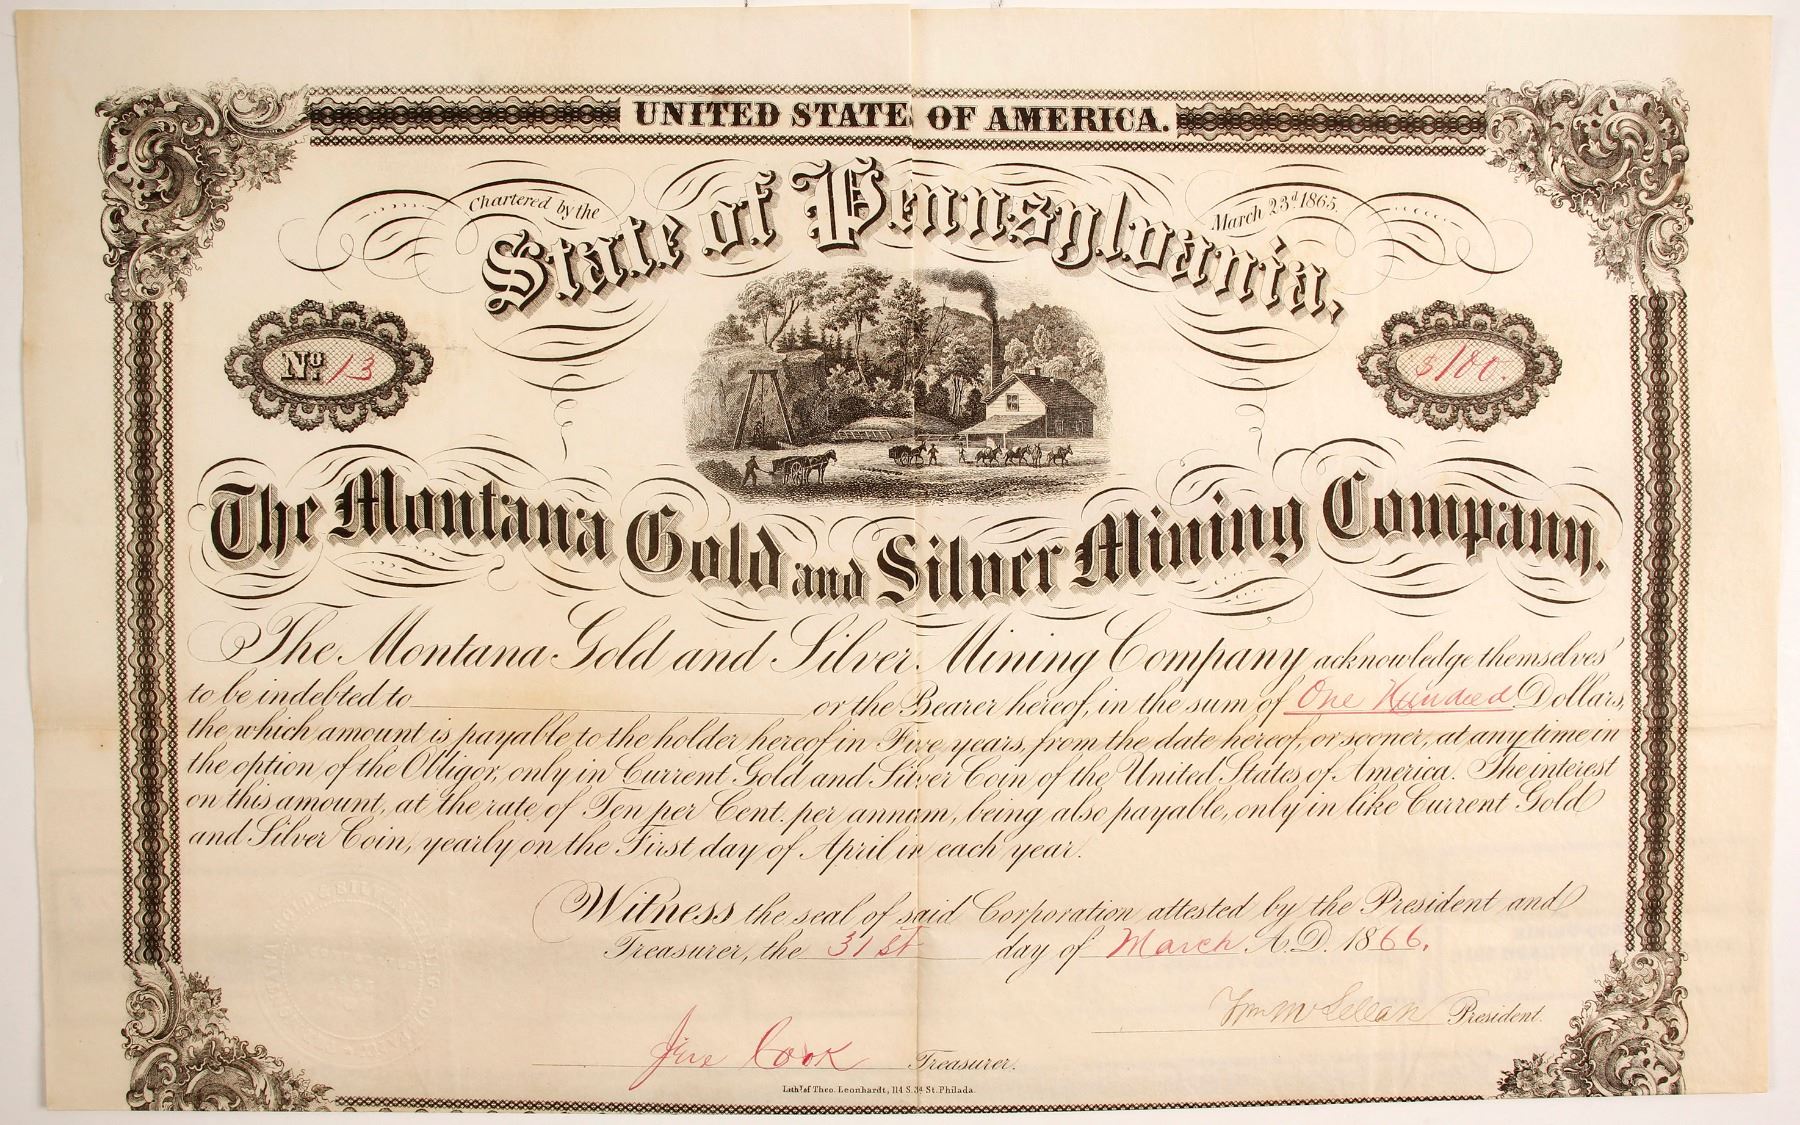 UNITED STATE OF AMERICA.
Chartered by the
March 23d 1865.
State of Pennsylvania,
No. 13
$100.
The Montana Gold and Silver Mining Company.
The Montana Gold and Silver Mining Company acknowledge themselves
to be indebted to or the Bearer hereof, in the sum of One Hundred Dollars,
the which amount is payable to the holder hereof in Five years, from the date hereof, or sooner, at any time in
the option of the Obligor, only in Current Gold and Silver Coin of the United States of America. The interest
on this amount, at the rate of Ten per Cent. per annum, being also payable, only in like Current Gold
and Silver Coin, yearly on the First day of April in each year.
Witness the seal of said Corporation attested by the President and
Treasurer, the 31st day of March A.D. 1866.
Wm McLellan President.
Cook Treasurer.
Lithd of Theo. Leonhardt, 114 S. 3d St. Philada.